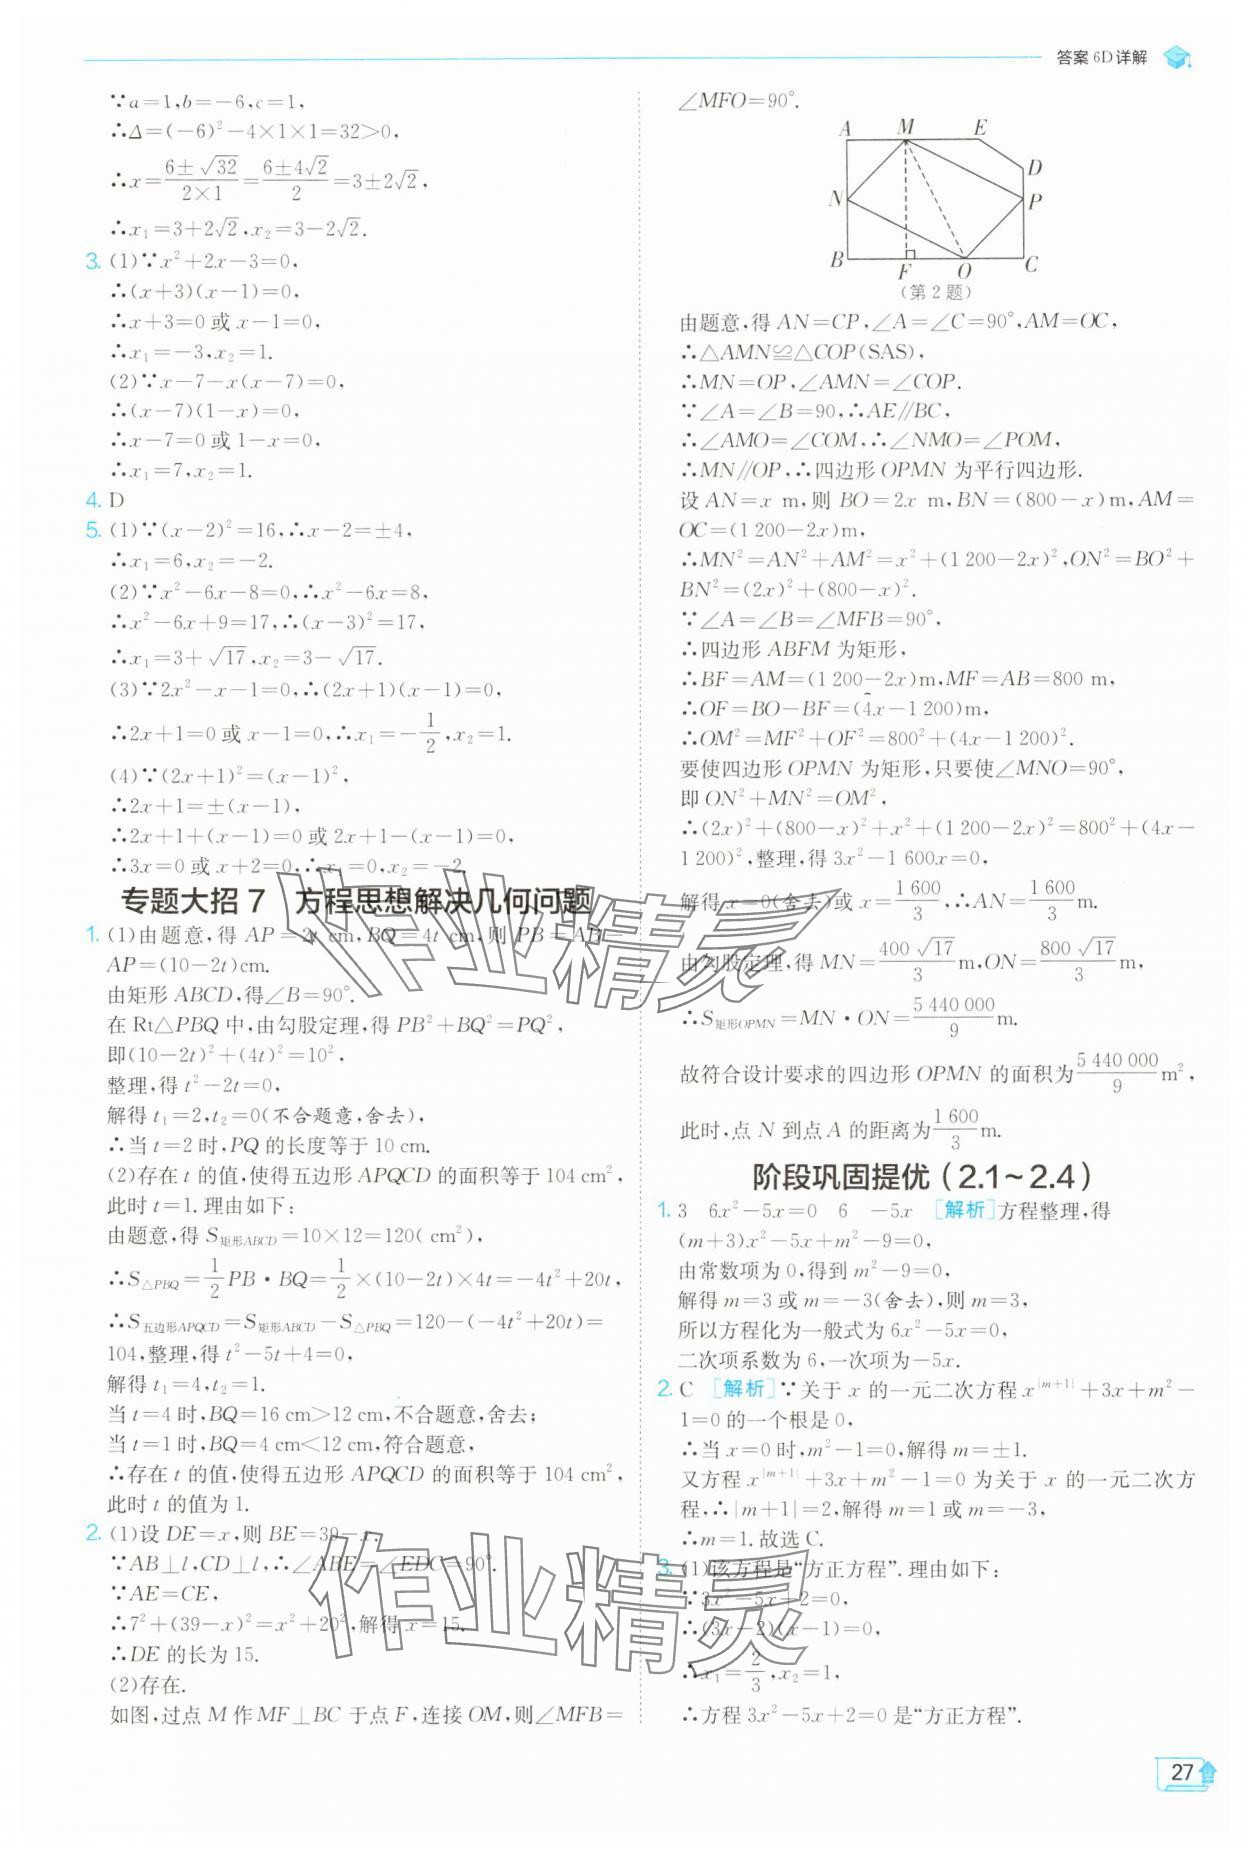 答案 6D 详解
∵a=1,b=-6,c=1,
∴Δ=(-6)²-4×1×1=32>0,
∴x=(6±√32)/(2×1)=(6±4√2)/2=3±2√2,
∴x₁=3+2√2,x₂=3-2√2.
3. (1)∵x²+2x-3=0,
∴(x+3)(x-1)=0,
∴x+3=0 或 x-1=0,
∴x₁=-3,x₂=1.
(2)∵x-7-x(x-7)=0,
∴(x-7)(1-x)=0,
∴x-7=0 或 1-x=0,
∴x₁=7,x₂=1.
4. D
5. (1)∵(x-2)²=16,∴x-2=±4,
∴x₁=6,x₂=-2.
(2)∵x²-6x-8=0,∴x²-6x=8,
∴x²-6x+9=17,∴(x-3)²=17,
∴x₁=3+√17,x₂=3-√17.
(3)∵2x²-x-1=0,∴(2x+1)(x-1)=0,
∴2x+1=0 或 x-1=0,∴x₁=-1/2,x₂=1.
(4)∵(2x+1)²=(x-1)²,
∴2x+1=±(x-1),
∴2x+1+(x-1)=0 或 2x+1-(x-1)=0,
∴3x=0 或 x+2=0,∴x₁=0,x₂=-2.
专题大招 7 方程思想解决几何问题
1. (1)由题意,得 AP=2t cm,BQ=4t cm,则 PB=AB-
AP=(10-2t)cm.
由矩形 ABCD,得∠B=90°.
在 Rt△PBQ 中,由勾股定理,得 PB²+BQ²=PQ²,
即(10-2t)²+(4t)²=10²,
整理,得 t²-2t=0,
解得 t₁=2,t₂=0(不合题意,舍去),
∴当 t=2 时,PQ 的长度等于 10 cm.
(2)存在 t 的值,使得五边形 APQCD 的面积等于 104 cm²,
此时 t=1. 理由如下:
由题意,得 S矩形ABCD=10×12=120( cm²),
∴S△PBQ=1/2 PB·BQ=1/2×(10-2t)×4t=-4t²+20t,
∴S五边形APQCD=S矩形ABCD-S△PBQ=120-(-4t²+20t)=
104,整理,得 t²-5t+4=0,
解得 t₁=4,t₂=1.
当 t=4 时,BQ=16 cm>12 cm,不合题意,舍去;
当 t=1 时,BQ=4 cm<12 cm,符合题意,
∴存在 t 的值,使得五边形 APQCD 的面积等于 104 cm²,
此时 t 的值为 1.
2. (1)设 DE=x,则 BE=39-x.
∵AB⊥l,CD⊥l,∴∠ABE=∠EDC=90°.
∵AE=CE,
∴7²+(39-x)²=x²+20²,解得 x=15.
∴DE 的长为 15.
(2)存在.
如图,过点 M 作 MF⊥BC 于点 F,连接 OM,则∠MFB=
∠MFO=90°.
A M E
D
N P
B F O C
(第 2 题)
由题意,得 AN=CP,∠A=∠C=90°,AM=OC,
∴△AMN≌△COP(SAS),
∴MN=OP,∠AMN=∠COP.
∵∠A=∠B=90,∴AE∥BC,
∴∠AMO=∠COM,∴∠NMO=∠POM,
∴MN∥OP,∴四边形 OPMN 为平行四边形.
设 AN=x m,则 BO=2x m,BN=(800-x)m,AM=
OC=(1 200-2x)m,
∴MN²=AN²+AM²=x²+(1 200-2x)²,ON²=BO²+
BN²=(2x)²+(800-x)².
∵∠A=∠B=∠MFB=90°,
∴四边形 ABFM 为矩形,
∴BF=AM=(1 200-2x)m,MF=AB=800 m,
∴OF=BO-BF=(4x-1 200)m,
∴OM²=MF²+OF²=800²+(4x-1 200)².
要使四边形 OPMN 为矩形,只要使∠MNO=90°,
即 ON²+MN²=OM²,
∴(2x)²+(800-x)²+x²+(1 200-2x)²=800²+(4x-
1 200)²,整理,得 3x²-1 600x=0,
解得 x=0(舍去)或 x=1 600/3,∴AN=1 600/3 m.
由勾股定理,得 MN=400√17/3 m,ON=800√17/3 m,
∴S矩形OPMN=MN·ON=5 440 000/9 m.
故符合设计要求的四边形 OPMN 的面积为5 440 000/9 m²,
此时,点 N 到点 A 的距离为1 600/3 m.
阶段巩固提优(2.1~2.4)
1. 3 6x²-5x=0 6 -5x [解析]方程整理,得
(m+3)x²-5x+m²-9=0,
由常数项为 0,得到 m²-9=0,
解得 m=3 或 m=-3(舍去),则 m=3,
所以方程化为一般式为 6x²-5x=0,
二次项系数为 6,一次项为-5x.
2. C [解析]∵关于 x 的一元二次方程 x^|m+1|+3x+m²-
1=0 的一个根是 0,
∴当 x=0 时,m²-1=0,解得 m=±1.
又方程 x^|m+1|+3x+m²-1=0 为关于 x 的一元二次方
程,∴|m+1|=2,解得 m=1 或 m=-3,
∴m=1. 故选 C.
3. (1)该方程是“方正方程”. 理由如下:
∵3x²-5x+2=0,
∴(3x-2)(x-1)=0,
∴x₁=2/3,x₂=1,
∴方程 3x²-5x+2=0 是“方正方程”.
27
作业精灵
作业精灵